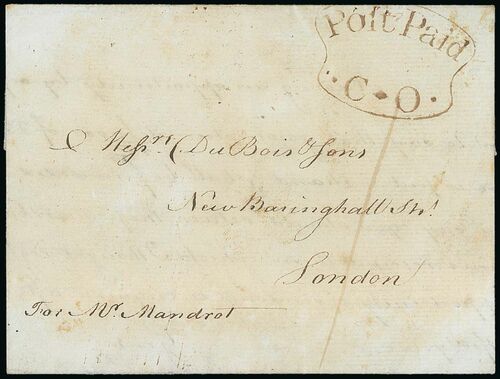 Poſt Paid
C O
Messrs. Du Bois & Sons
New Basinghall Str.
London
For Mr. Mandrot